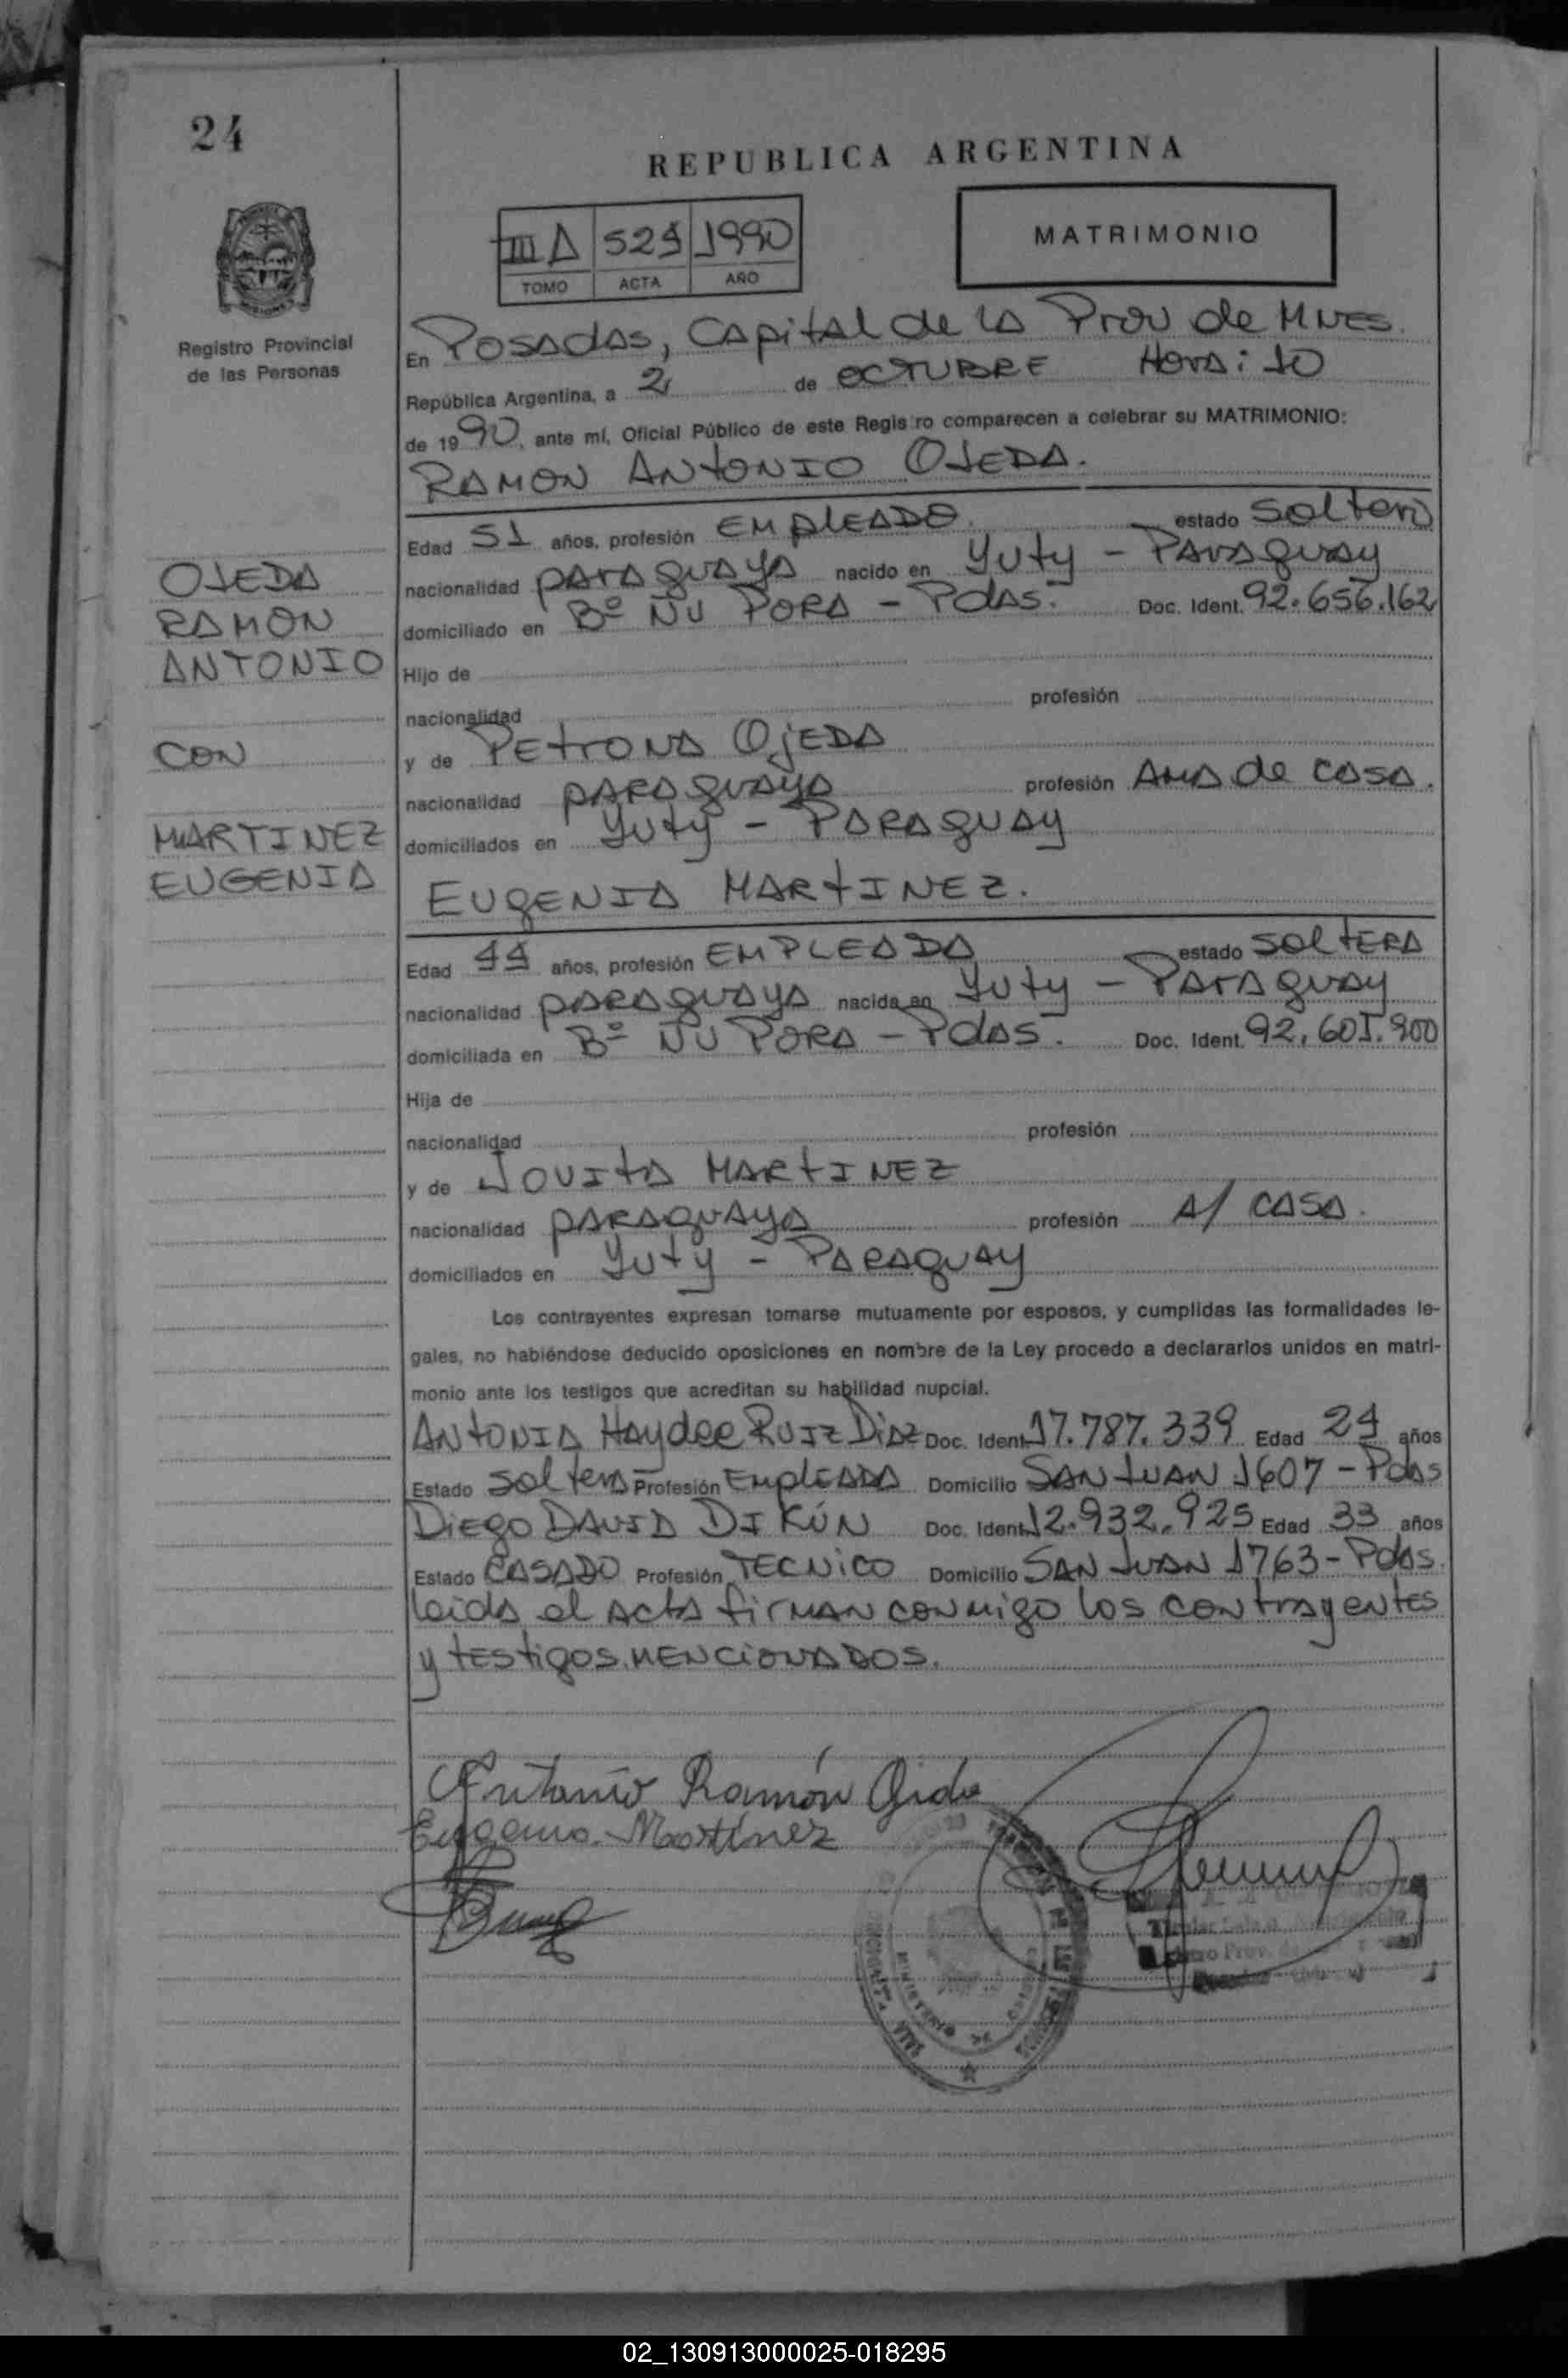 24
REPUBLICA ARGENTINA
III A 524 1990
TOMO ACTA AÑO
MATRIMONIO
Registro Provincial
de las Personas
En Posadas, Capital de la Prov de Mnes.
República Argentina, a 2 de OCTUBRE Hora: 10
de 1990, ante mí, Oficial Público de este Registro comparecen a celebrar su MATRIMONIO:
RAMON ANTONIO OJEDA.
Edad 51 años, profesión EMPLEADO. estado Soltero
nacionalidad paraguaya nacido en Yuty - Paraguay
domiciliado en Bº ÑU PORA - Pdas. Doc. Ident. 92.656.162
Hijo de
nacionalidad profesión
y de PETRONA OJEDA
nacionalidad PARAGUAYA profesión AMA de CASA.
domiciliados en Yuty - PARAGUAY
OJEDA
RAMON
ANTONIO
CON
MARTINEZ
EUGENIA
EUGENIA MARTINEZ.
Edad 44 años, profesión EMPLEADA estado SOLTERA
nacionalidad PARAGUAYA nacida en Yuty - PARAGUAY
domiciliada en Bº ÑU PORA - Pdas. Doc. Ident. 92.601.900
Hija de
nacionalidad profesión
y de JOVITA MARTINEZ
nacionalidad PARAGUAYA profesión A/ CASA.
domiciliados en Yuty - PARAGUAY
Los contrayentes expresan tomarse mutuamente por esposos, y cumplidas las formalidades le-
gales, no habiéndose deducido oposiciones en nombre de la Ley procedo a declararlos unidos en matri-
monio ante los testigos que acreditan su habilidad nupcial.
ANTONIA Haydee RUIZ DIAZ Doc. Ident. 17.787.339 Edad 24 años
Estado Soltera Profesión EMPLEADA Domicilio SAN JUAN 1607 - Pdas
DIEGO DAVID DIKÚN Doc. Ident. 12.932.925 Edad 33 años
Estado CASADO Profesión TECNICO Domicilio SAN JUAN 1763 - Pdas.
leida el Acta firman conmigo los contrayentes
y testigos mencionados.
Antonio Ramón Ojeda
Eugenia Martínez
MINISTERIO DE
02_130913000025-018295